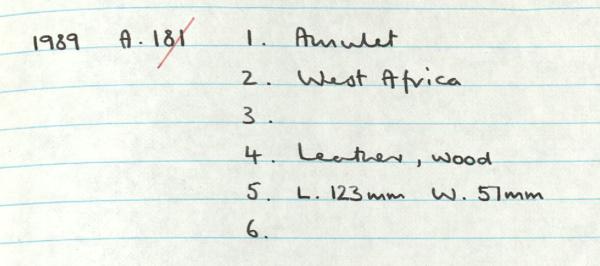 1989 A.181 1. Amulet
2. West Africa
3.
4. Leather, wood
5. L. 123mm W. 51mm
6.